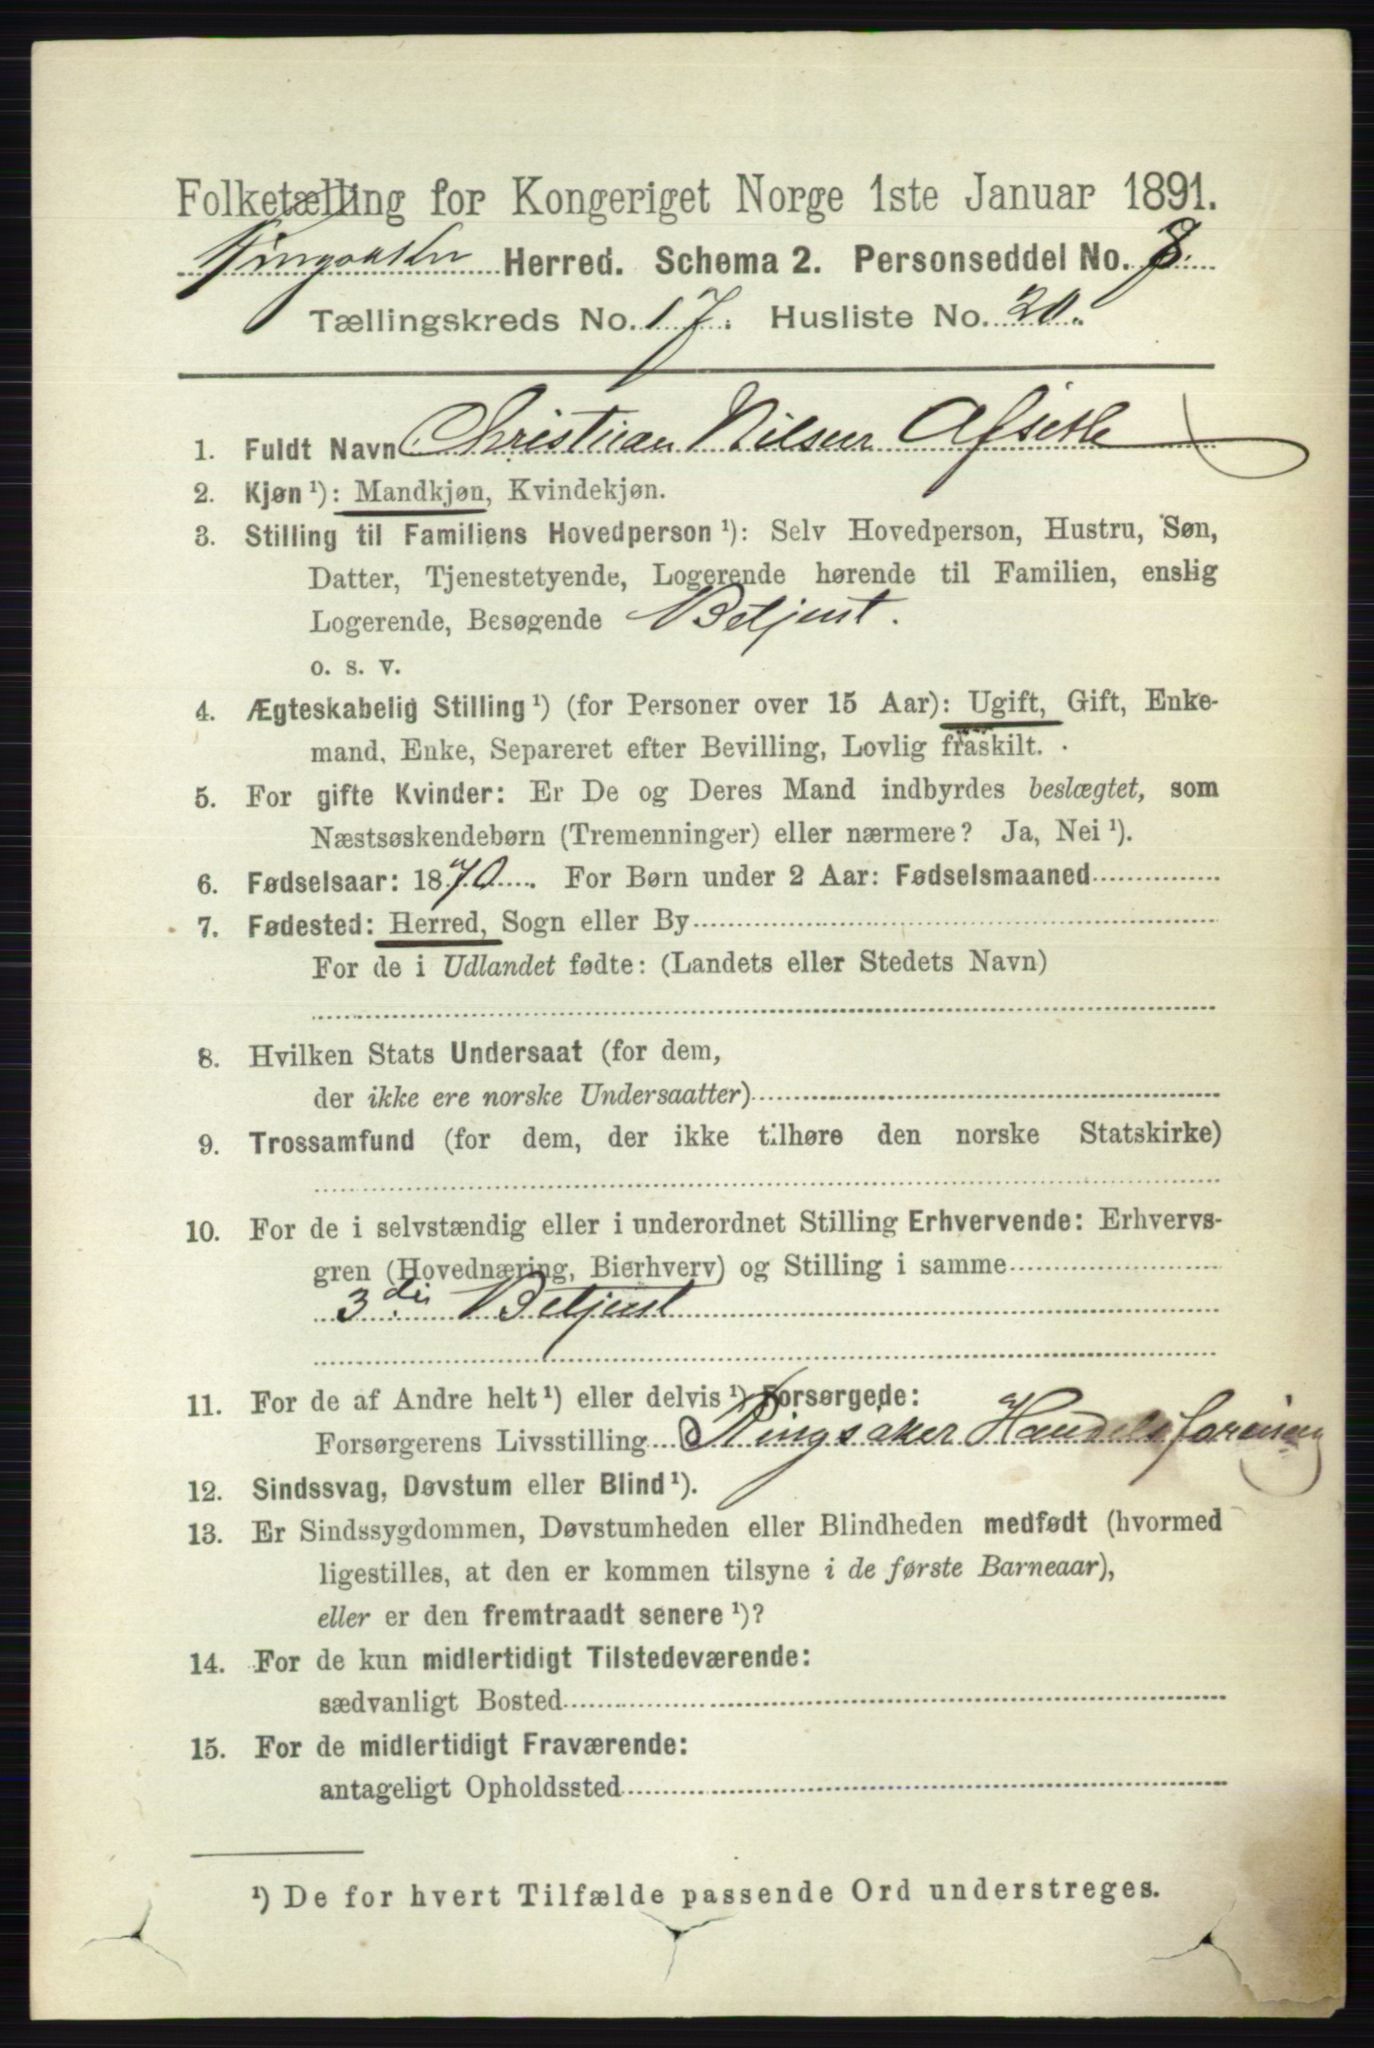 Folketælling for Kongeriget Norge 1ste Januar 1891.
Ringsaker Herred. Schema 2. Personseddel No. 8.
Tællingskreds No. 17. Husliste No. 20.
1. Fuldt Navn Christian Nilsen Afseth
2. Kjøn ¹): Mandkjøn, Kvindekjøn.
3. Stilling til Familiens Hovedperson ¹): Selv Hovedperson, Hustru, Søn,
Datter, Tjenestetyende, Logerende hørende til Familien, enslig
Logerende, Besøgende Betjent.
o. s. v.
4. Ægteskabelig Stilling ¹) (for Personer over 15 Aar): Ugift, Gift, Enke-
mand, Enke, Separeret efter Bevilling, Lovlig fraskilt.
5. For gifte Kvinder: Er De og Deres Mand indbyrdes beslægtet, som
Næstsøskendebørn (Tremenninger) eller nærmere? Ja, Nei ¹).
6. Fødselsaar: 1870. For Børn under 2 Aar: Fødselsmaaned
7. Fødested: Herred, Sogn eller By
For de i Udlandet fødte: (Landets eller Stedets Navn)
8. Hvilken Stats Undersaat (for dem,
der ikke ere norske Undersaatter)
9. Trossamfund (for dem, der ikke tilhøre den norske Statskirke)
10. For de i selvstændig eller i underordnet Stilling Erhvervende: Erhvervs-
gren (Hovednæring, Bierhverv) og Stilling i samme
3die Betjent
11. For de af Andre helt ¹) eller delvis ¹) Forsørgede:
Forsørgerens Livsstilling Ringsaker Handelsforening
12. Sindssvag, Døvstum eller Blind ¹).
13. Er Sindssygdommen, Døvstumheden eller Blindheden medfødt (hvormed
ligestilles, at den er kommen tilsyne i de første Barneaar),
eller er den fremtraadt senere ¹)?
14. For de kun midlertidigt Tilstedeværende:
sædvanligt Bosted
15. For de midlertidigt Fraværende:
antageligt Opholdssted
¹) De for hvert Tilfælde passende Ord understreges.